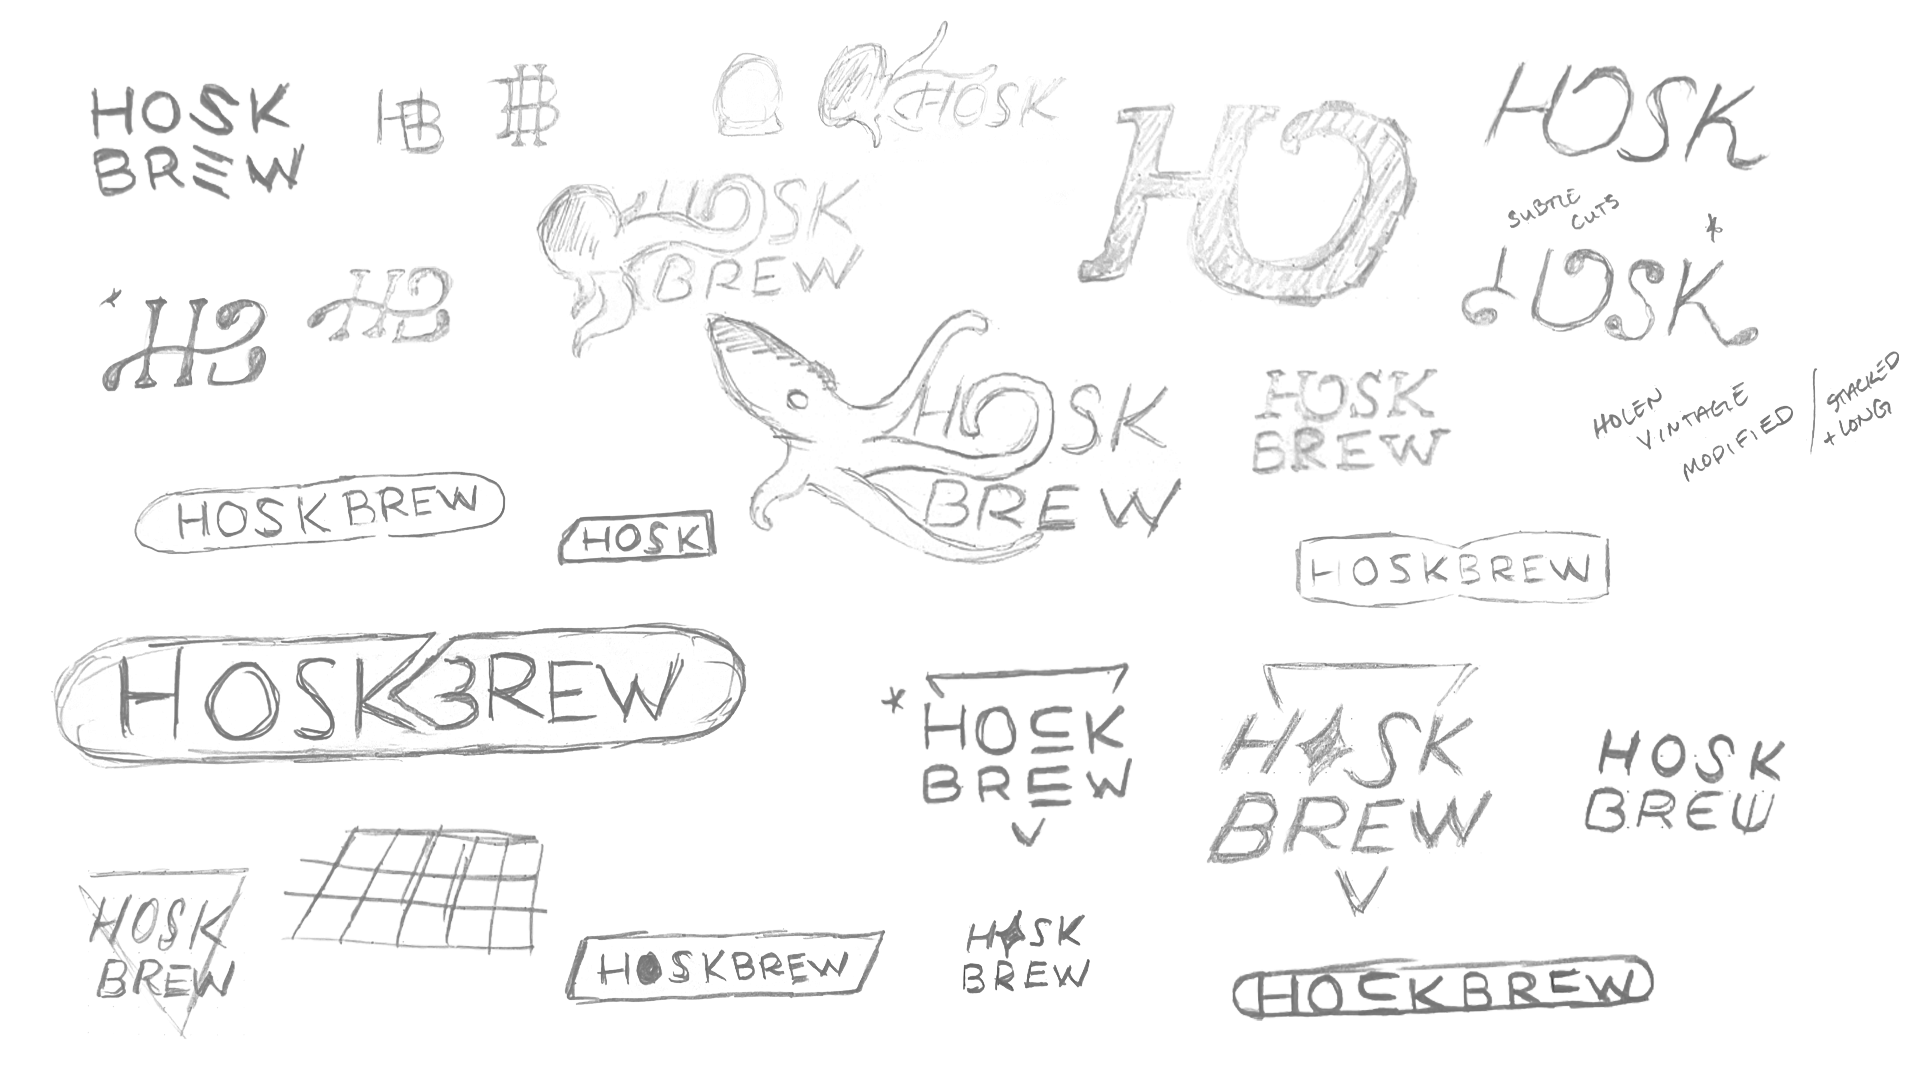 HOSK
BREW
HB
HB
HOSK
HO
HOSK
SUBTLE
CUTS
HOSK
BREW
HB
HB
HOSK
HOSK
BREW
HOSK
BREW
HOLEN
VINTAGE
MODIFIED
STACKED
+ LONG
HOSKBREW
HOSK
HOSKBREW
HOSKBREW
HOSK
BREW
HOSK
BREW
HOSK
BREW
HOSK
BREW
HOSKBREW
HOSK
BREW
HOSKBREW